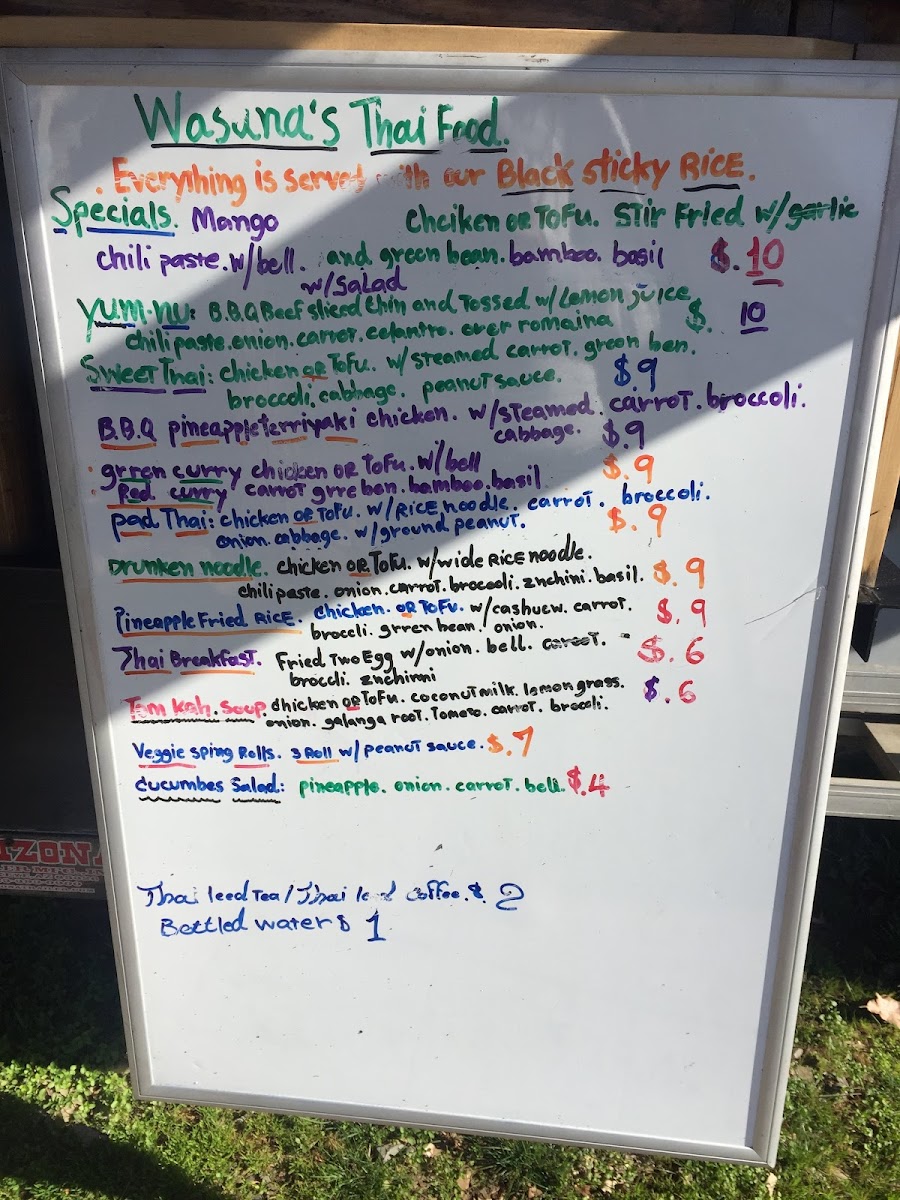 Wasuna's Thai Food.
. Everything is served with our Black sticky RICE.
Specials. Mango chciken OR ToFu. STir Fried w/garlic
chili paste. w/bell. and green bean. bamboo. basil $.10
w/Salad
yum.nu: B.B.Q Beef sliced thin and Tossed w/Lemon juice $. 10
chili paste. onion. carrot. celantro. over romaina
Sweet Thai: chicken OR ToFu. w/steamed carrot. green ben.
broccoli, cabbage. peanut sauce. $.9
B.B.Q pineapple Terriyaki chicken. w/steamed. carroT. broccoli.
cabbage. $.9
grren curry chicken OR ToFu. w/bell $.9
Red curry carroT grre ben. bamboo. basil
pad Thai: chicken OR ToFu. w/RICE noodle. carroT. broccoli.
onion. cabbage. w/ground peanut. $.9
DRunken noodle. chicken OR ToFu. w/wide RICE noodle.
chili paste. onion. carroT. broccoli. znchini. basil. $.9
Pineapple Fried RICE. chicken. OR ToFu. w/cashuew. carroT. $.9
broccli. grren bean. onion.
Thai BreakfasT. Fried Two Egg w/onion. bell. carroT. $.6
broccli. znchinni
Tom Kah. Soup dhicken OR ToFu. coconuT milk. lemon grass. $.6
onion. galanga rooT. Tomato. carroT. broccoli.
Veggie sping Rolls. 3 Roll w/peanuT sauce. $.7
cucumbes Salad: pineapple. onion. carroT. bell. $.4
IZONA
Thai Iced Tea/Thai Iced coffee. $. 2
Bottled water $ 1